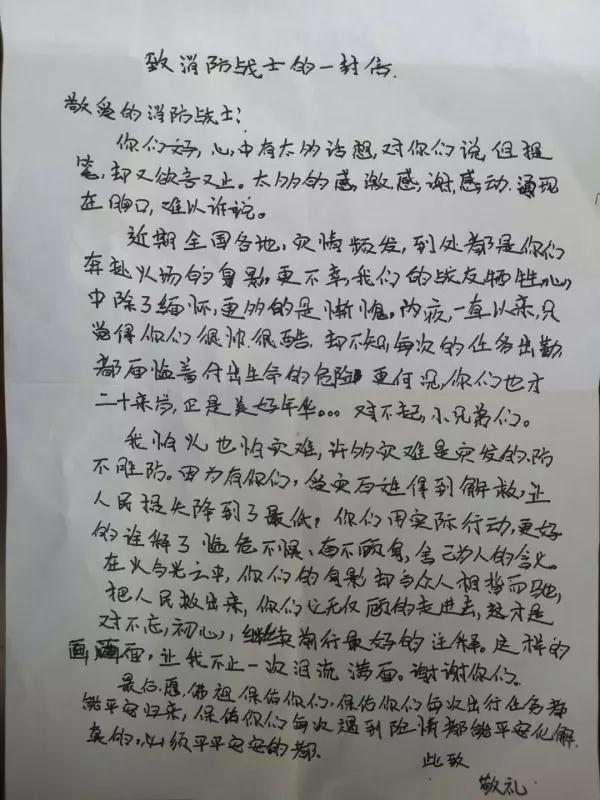 致消防战士的一封信.
敬爱的消防战士：
你们好，心中有太多话想，对你们说，但提
笔，却又欲言又止。太多的感激，感谢，感动，涌现
在胸口，难以诉说。
近期全国各地，灾情频发，到处都是你们
奔赴火场的身影，更不幸，我们的战友牺牲，心
中除了缅怀，更多的是惭愧，内疚，一直以来，只
觉得你们很帅，很酷，却不知，每次的任务出勤
都面临着付出生命的危险，更何况，你们也才
二十来岁，正是美好年华... 对不起，小兄弟们。
我怕火也怕灾难，许多灾难是突发的，防
不胜防。因为有你们，受灾百姓得到解救，让
人民损失降到了最低，你们用实际行动，更好
的诠解了临危不惧、奋不顾身，舍己为人的含义
在火与光之中，你们的身影却与众人相背而驰，
把人民救出来，你们义无反顾的走进去，这才是
对不忘，初心，继续前行最好的注释。这样的
画面，让我不止一次泪流满面。谢谢你们。
最后，愿，佛祖保佑你们，保佑你们每次出行任务都
能平安归来，保佑你们每次遇到险情都能平安化解.
真的，必须平平安安的都.
此致
敬礼